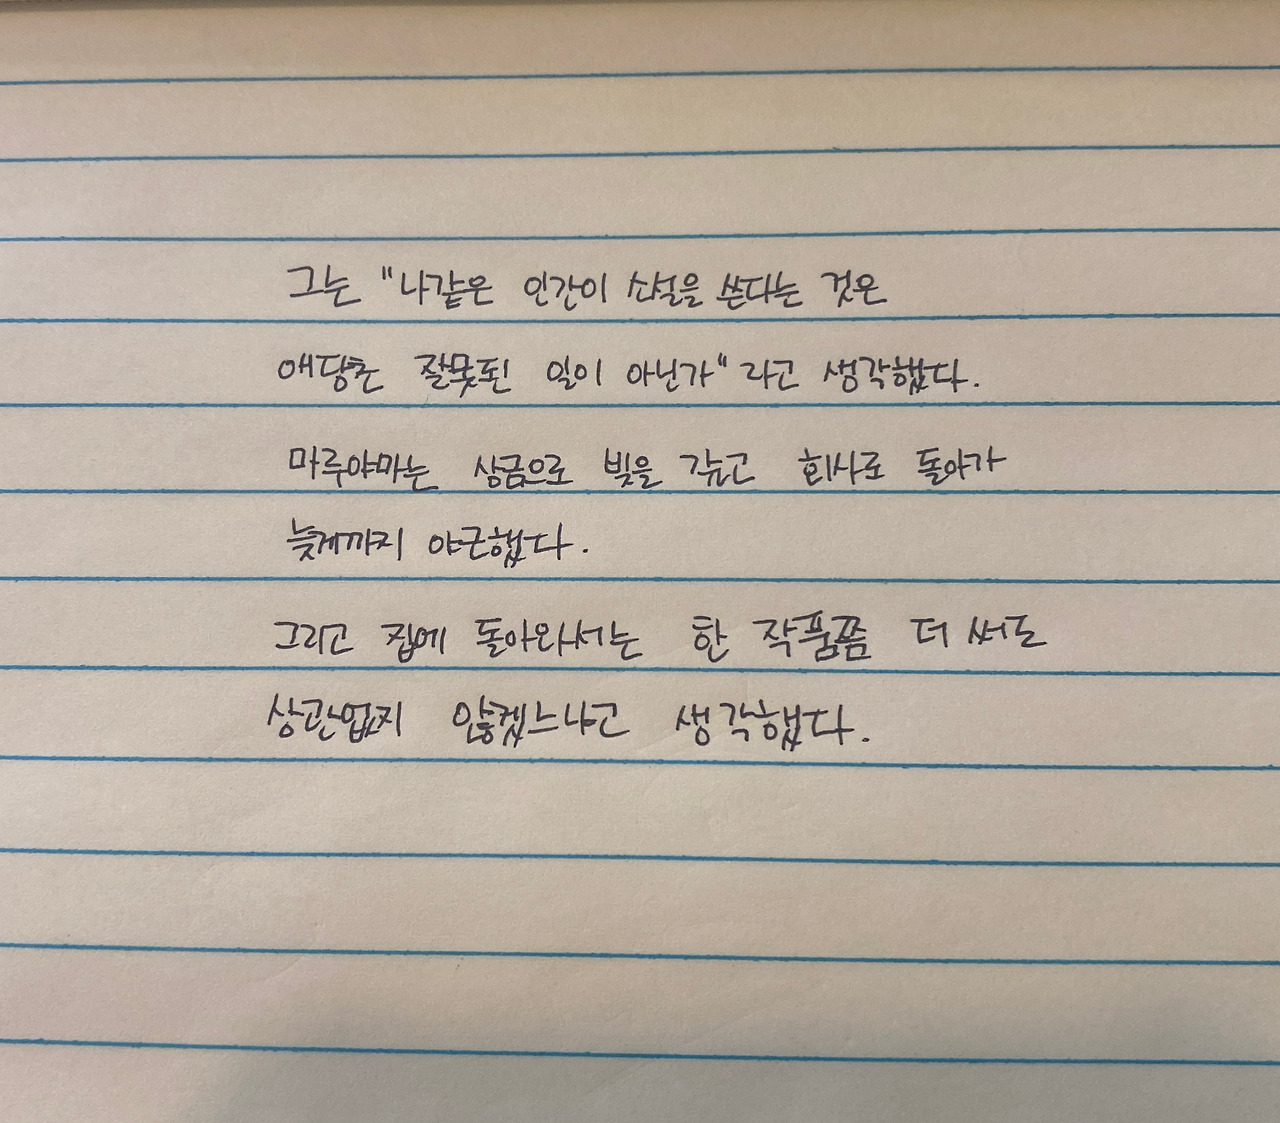 그는 "나같은 인간이 소설을 쓴다는 것은
애당촌 잘못된 일이 아닌가" 라고 생각했다.
마루야마는 상금으로 빚을 갚고 회사로 돌아가
늦게까지 야근했다.
그리고 집에 돌아와서는 한 작품쯤 더 써도
상관없지 않겠느냐고 생각했다.